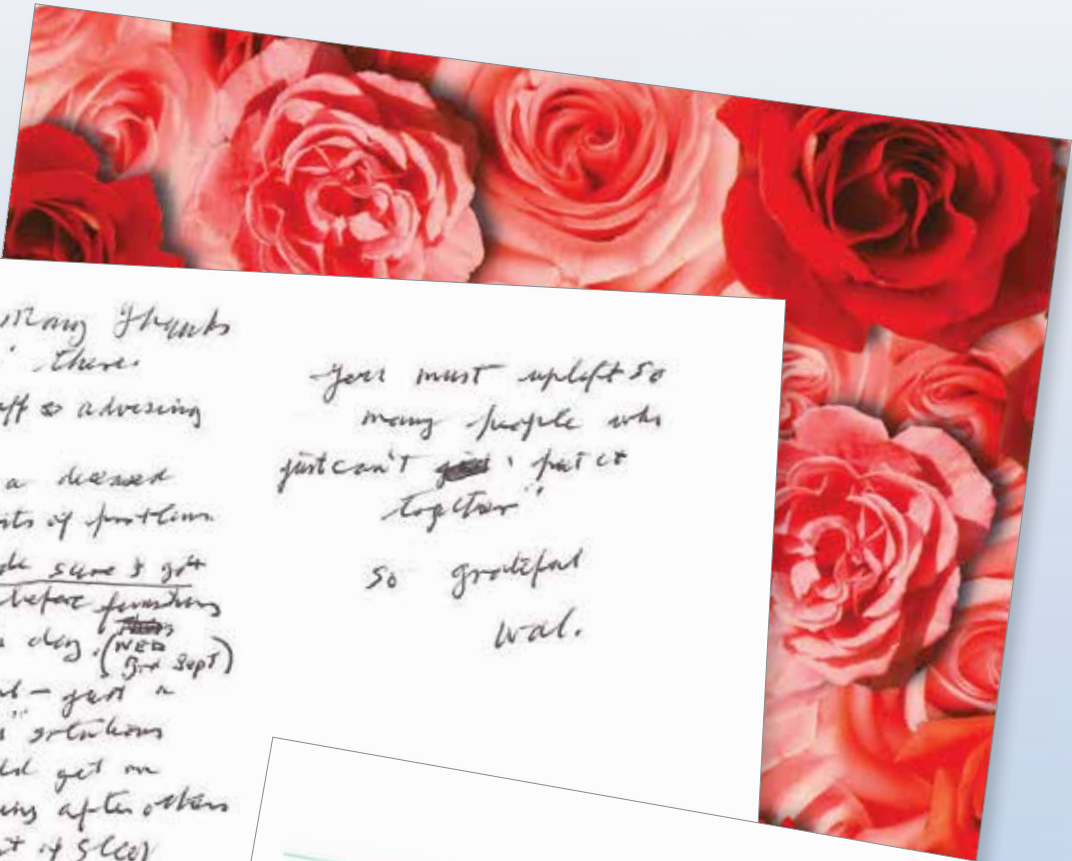 Many Thanks
there.
aff & advising
a deceased
of problems
sure I got
before finishing
day. (WED
3rd Sept)
– just a
get me
after others
of sleep
You must uplift so
many people who
just can't "put it
together"
So grateful
Wal.